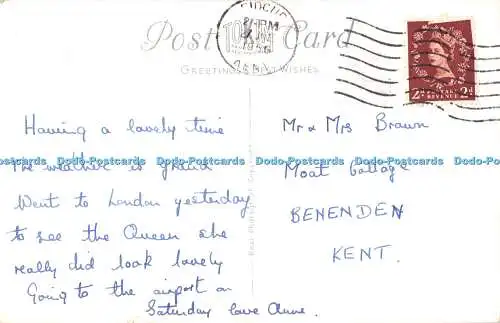 Post Card
GREETINGS & BEST WISHES
2- PM
1956
2D POSTAGE REVENUE 2D
Having a lovely time
The weather is grand
Went to London yesterday
to see the Queen she
really did look lovely
Going to the airport on
Saturday love Anne.
Mr & Mrs Brown
Moat Cottage
BENENDEN
KENT.
Dodo-Postcards Dodo-Postcards Dodo-Postcards Dodo-Postcards Dodo-Postcards